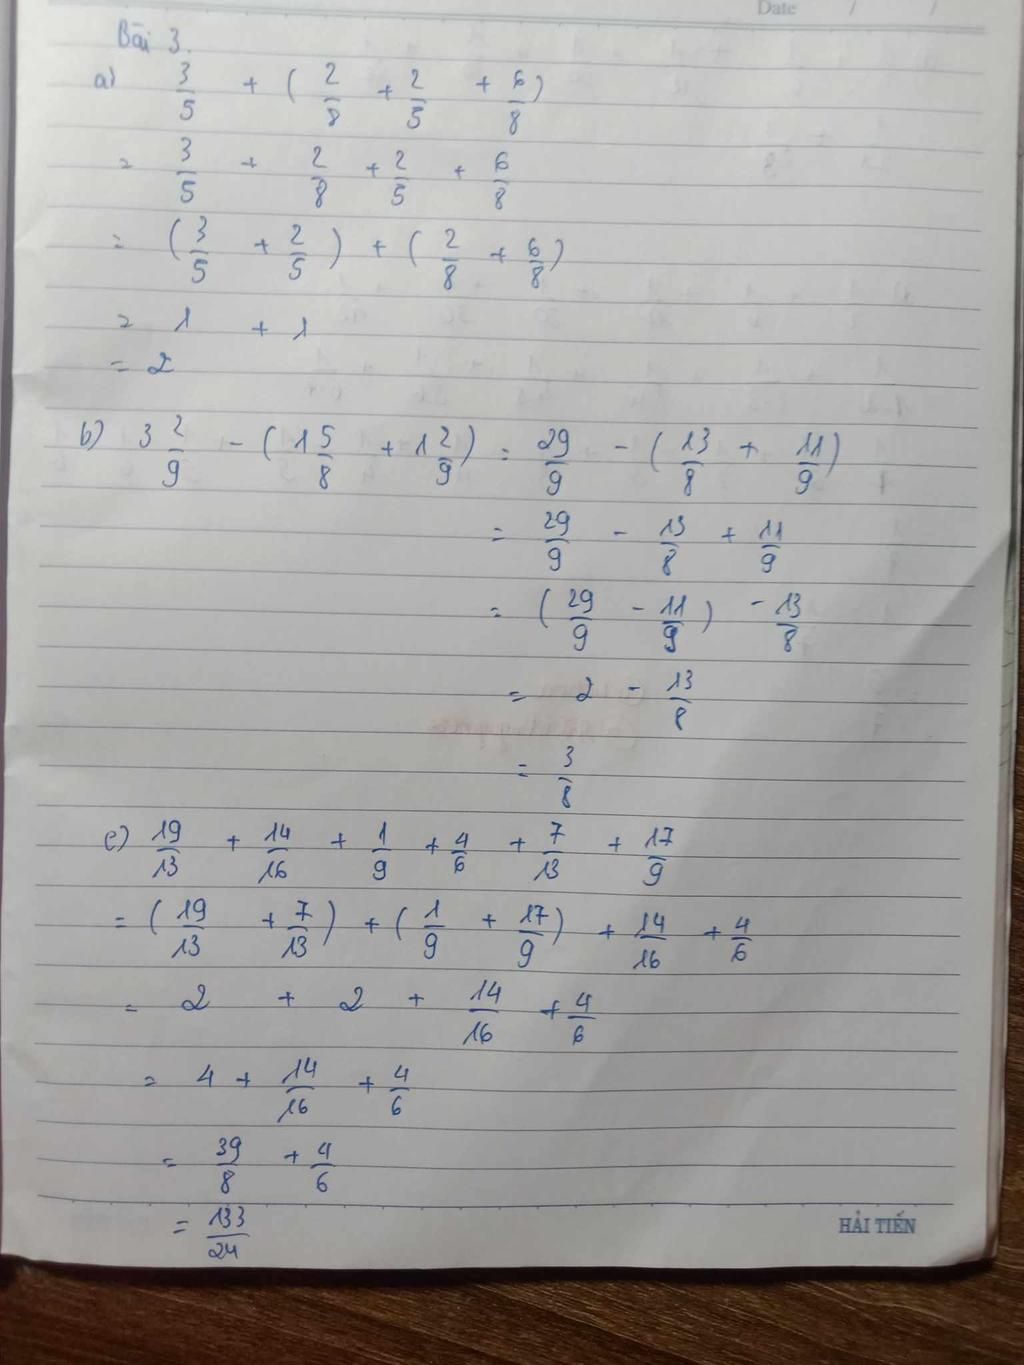 Date / /
Bài 3.
a) 3/5 + ( 2/8 + 2/5 + 6/8 )
= 3/5 + 2/8 + 2/5 + 6/8
= ( 3/5 + 2/5 ) + ( 2/8 + 6/8 )
= 1 + 1
= 2
b) 3 2/9 - ( 1 5/8 + 1 2/9 ) = 29/9 - ( 13/8 + 11/9 )
= 29/9 - 13/8 + 11/9
= ( 29/9 - 11/9 ) - 13/8
= 2 - 13/8
= 3/8
c) 19/13 + 14/16 + 1/9 + 4/6 + 7/13 + 17/9
= ( 19/13 + 7/13 ) + ( 1/9 + 17/9 ) + 14/16 + 4/6
= 2 + 2 + 14/16 + 4/6
= 4 + 14/16 + 4/6
= 39/8 + 4/6
= 133/24
HẢI TIẾN